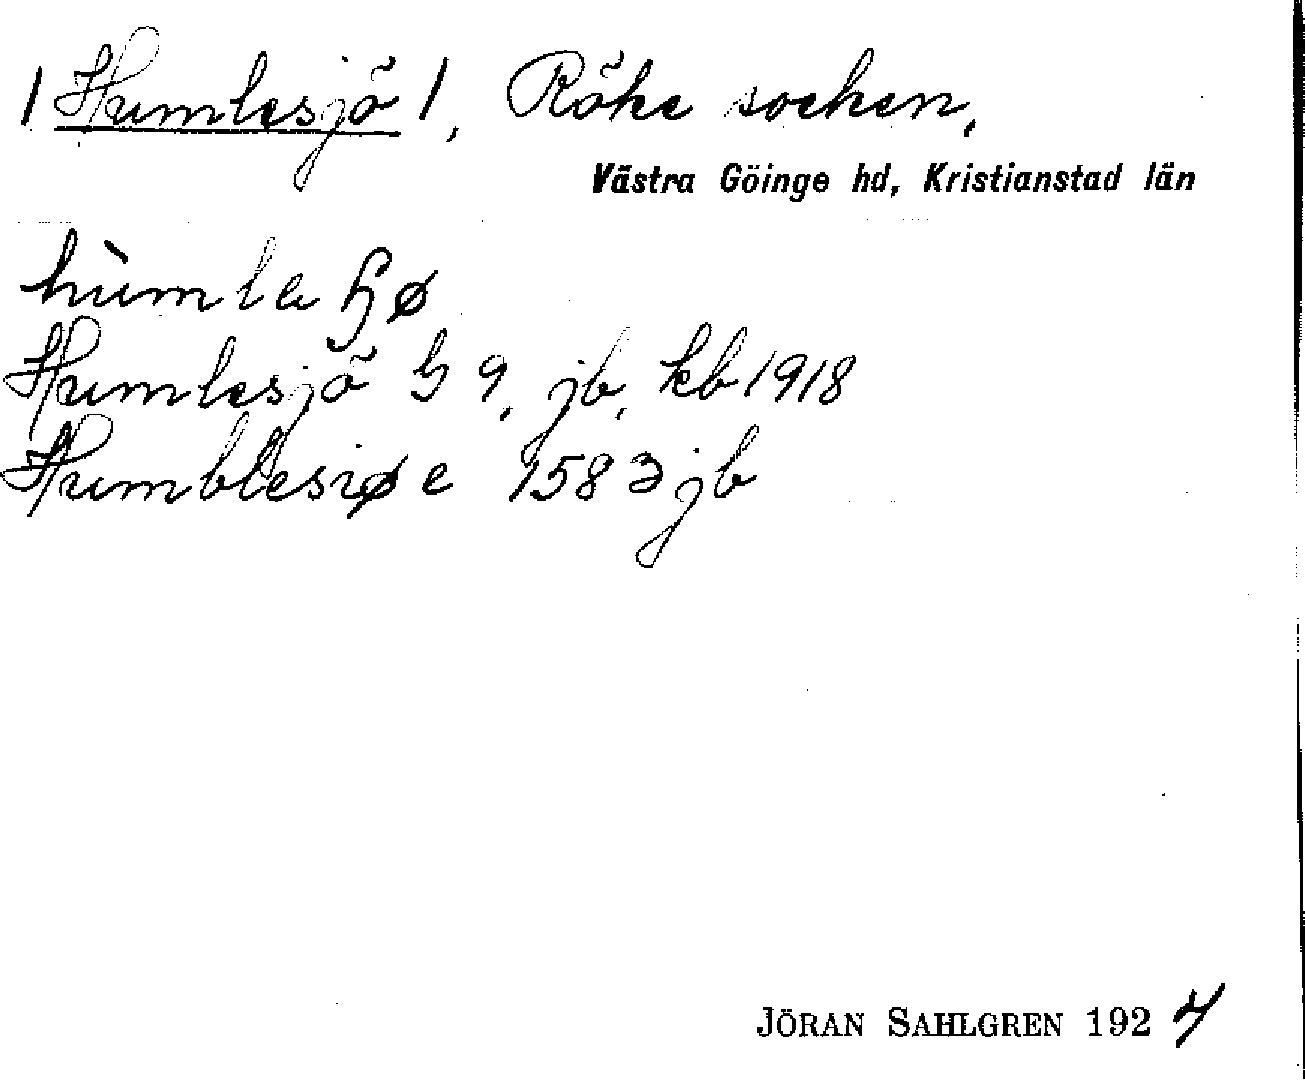 /Humlesjö/, Röke socken,
Västra Göinge hd, Kristianstad län
hùmla ɧø
Humlesjö G 9, jb, kb 1918
Humblesiøe 1583 jb
JÖRAN SAHLGREN 1924